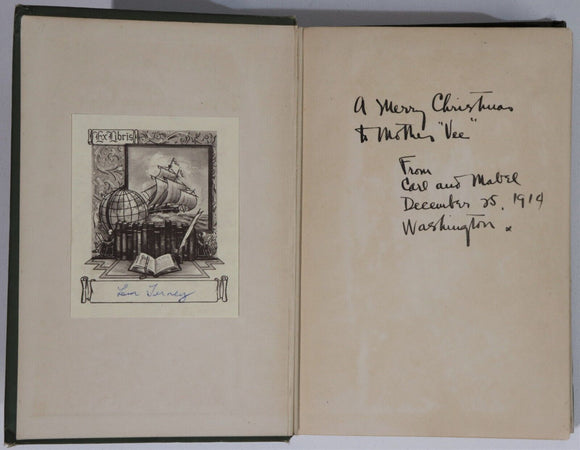 Ex Libris
Tierney
A Merry Christmas
to Mother "Vee"
From
Carl and Mabel
December 25, 1914
Washington